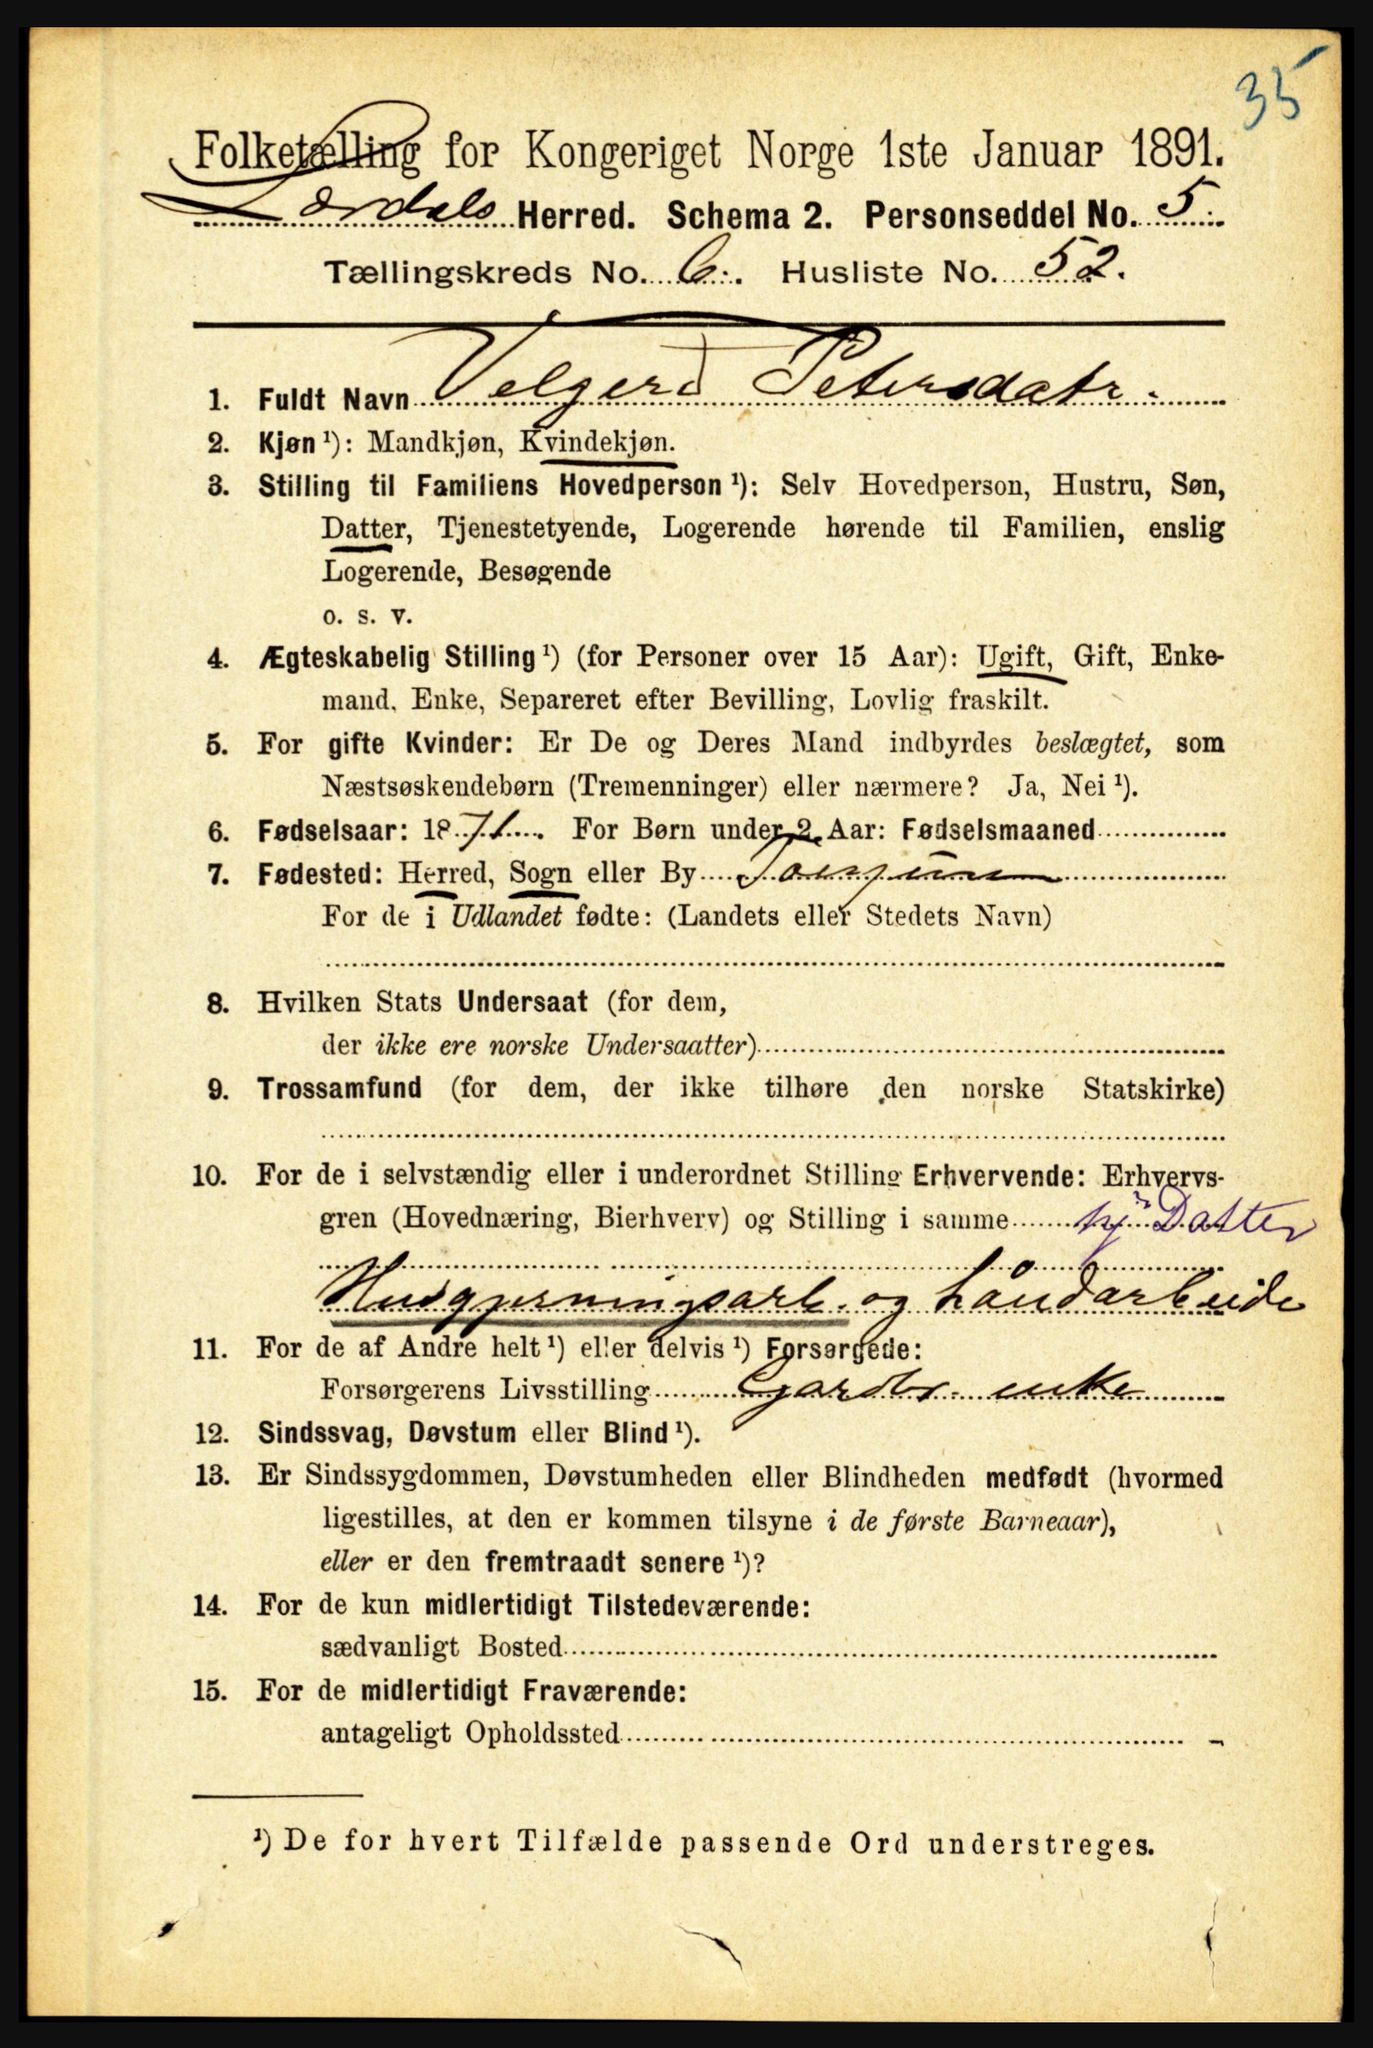 35
Folketælling for Kongeriget Norge 1ste Januar 1891.
Lærdals Herred. Schema 2. Personseddel No. 5.
Tællingskreds No. 6. Husliste No. 52.
1. Fuldt Navn Velgerd Petersdatr.
2. Kjøn ¹): Mandkjøn, Kvindekjøn.
3. Stilling til Familiens Hovedperson ¹): Selv Hovedperson, Hustru, Søn,
Datter, Tjenestetyende, Logerende hørende til Familien, enslig
Logerende, Besøgende
o. s. v.
4. Ægteskabelig Stilling ¹) (for Personer over 15 Aar): Ugift, Gift, Enke-
mand, Enke, Separeret efter Bevilling, Lovlig fraskilt.
5. For gifte Kvinder: Er De og Deres Mand indbyrdes beslægtet, som
Næstsøskendebørn (Tremenninger) eller nærmere? Ja, Nei ¹).
6. Fødselsaar: 1871. For Børn under 2 Aar: Fødselsmaaned
7. Fødested: Herred, Sogn eller By
For de i Udlandet fødte: (Landets eller Stedets Navn)
8. Hvilken Stats Undersaat (for dem,
der ikke ere norske Undersaatter)
9. Trossamfund (for dem, der ikke tilhøre den norske Statskirke)
10. For de i selvstændig eller i underordnet Stilling Erhvervende: Erhvervs-
gren (Hovednæring, Bierhverv) og Stilling i samme hj. Datter
Husgjerningsarb. og håndarbeide
11. For de af Andre helt ¹) eller delvis ¹) Forsørgede:
Forsørgerens Livsstilling Gardbr. enke
12. Sindssvag, Døvstum eller Blind ¹).
13. Er Sindssygdommen, Døvstumheden eller Blindheden medfødt (hvormed
ligestilles, at den er kommen tilsyne i de første Barneaar),
eller er den fremtraadt senere ¹)?
14. For de kun midlertidigt Tilstedeværende:
sædvanligt Bosted
15. For de midlertidigt Fraværende:
antageligt Opholdssted
¹) De for hvert Tilfælde passende Ord understreges.